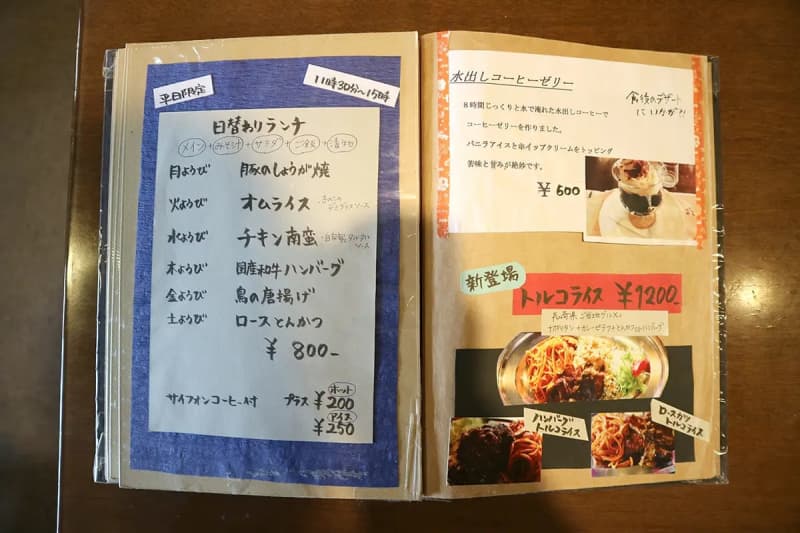 平日限定
11時30分〜15時
日替わりランチ
メイン+みそ汁+サラダ+ご飯+漬物
月ようび 豚のしょうが焼
火ようび オムライス ・きのこの
デミグラスソース
水ようび チキン南蛮 ・自家製タルタル
ソース
木ようび 国産和牛ハンバーグ
金ようび 鳥の唐揚げ
土ようび ロースとんかつ
¥800-
サイフォンコーヒー付 プラス ホット ¥200
アイス ¥250
水出しコーヒーゼリー
食後のデザート
にいかが!!
8時間じっくりと水で淹れた水出しコーヒーで
コーヒーゼリーを作りました。
バニラアイスとホイップクリームをトッピング
苦味と旨みが絶妙です。
¥600
新登場
トルコライス ¥1200-
長崎県ご当地グルメ!
ナポリタン+カレーピラフ+とんかつorハンバーグ
ハンバーグ
トルコライス
ロースカツ
トルコライス